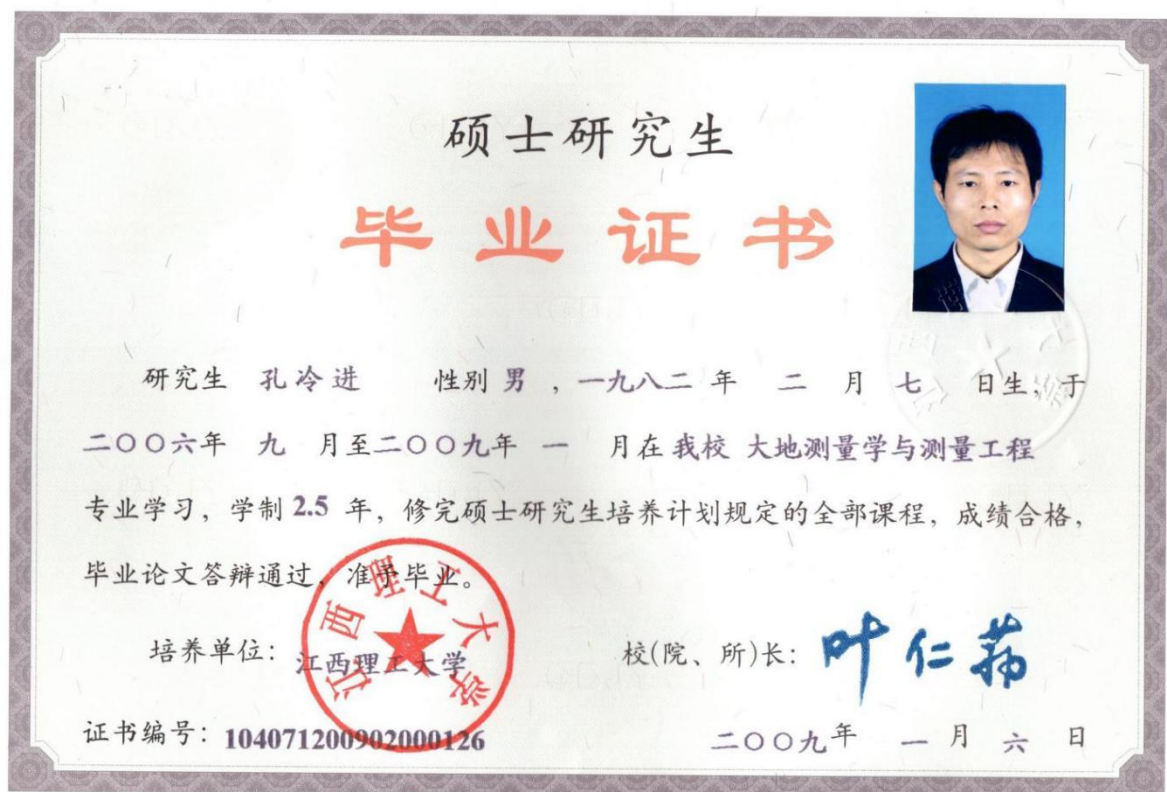 硕士研究生
毕业证书
研究生 孔冷进 性别 男 ，一九八二 年 二 月 七 日生，于
二〇〇六年 九 月至二〇〇九年 一 月在 我校 大地测量学与测量工程
专业学习，学制 2.5 年，修完硕士研究生培养计划规定的全部课程，成绩合格，
毕业论文答辩通过，准予毕业。
江西理工大学
培养单位：江西理工大学
校(院、所)长：叶仁荪
证书编号：104071200902000126
二〇〇九年 一 月 六 日